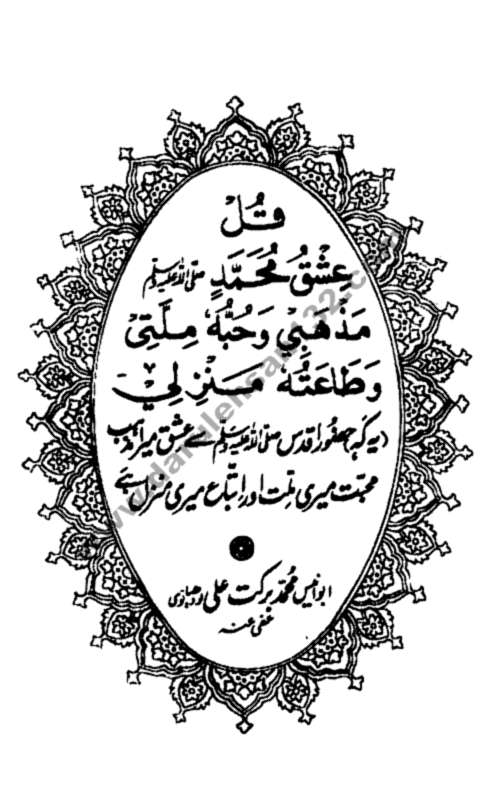 قُلْ
عِشْقُ مُحَمَّدٍ صلی اللہ علیہ وسلم
مَذْهَبِيْ وَحُبُّهٗ مِلَّتِيْ
وَطَاعَتُهٗ مَنْزِلِيْ
(یہ کہ حضور اقدس صلی اللہ علیہ وسلم سے عشق میرا مذہب
محبت میری ملت اور اتباع میری منزل ہے
ابو انیس محمد برکت علی لودھیانوی
عفی عنہ